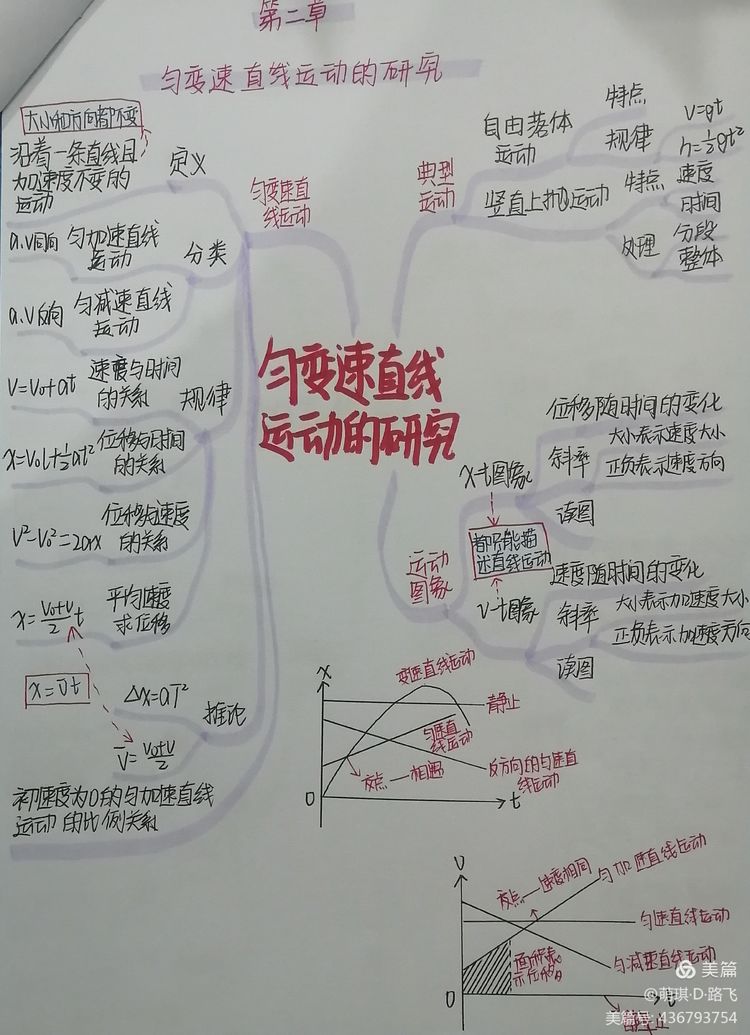 第二章
匀变速直线运动的研究
匀变速直线
运动的研究
匀变速直
线运动
定义
大小和方向都不变
沿着一条直线且
加速度不变的
运动
分类
a.v同向 匀加速直线
运动
a.v反向 匀减速直线
运动
规律
v=v₀+at 速度与时间
的关系
x=v₀t+½at² 位移与时间
的关系
v²-v₀²=2ax 位移与速度
的关系
x=(v₀+v)/2 t 平均速度
求位移
x=v̄t
推论
Δx=aT²
v̄=(v₀+v)/2
初速度为0的匀加速直线
运动的比例关系
典型
运动
自由落体
运动
特点
规律
v=gt
h=½gt²
竖直上抛运动
特点
速度
时间
处理
分段
整体
运动
图象
x-t图象
位移随时间的变化
斜率
大小表示速度大小
正负表示速度方向
读图
都只能描
述直线运动
v-t图象
速度随时间的变化
斜率
大小表示加速度大小
正负表示加速度方向
读图
x
变速直线运动
静止
匀速直
线运动
交点—相遇
反方向的匀速直
线运动
0
t
v
交点—速度相同
匀加速直线运动
匀速直线运动
面积表
示位移
匀减速直线运动
0
美篇
@萌琪·D·路飞
美篇号:436793754